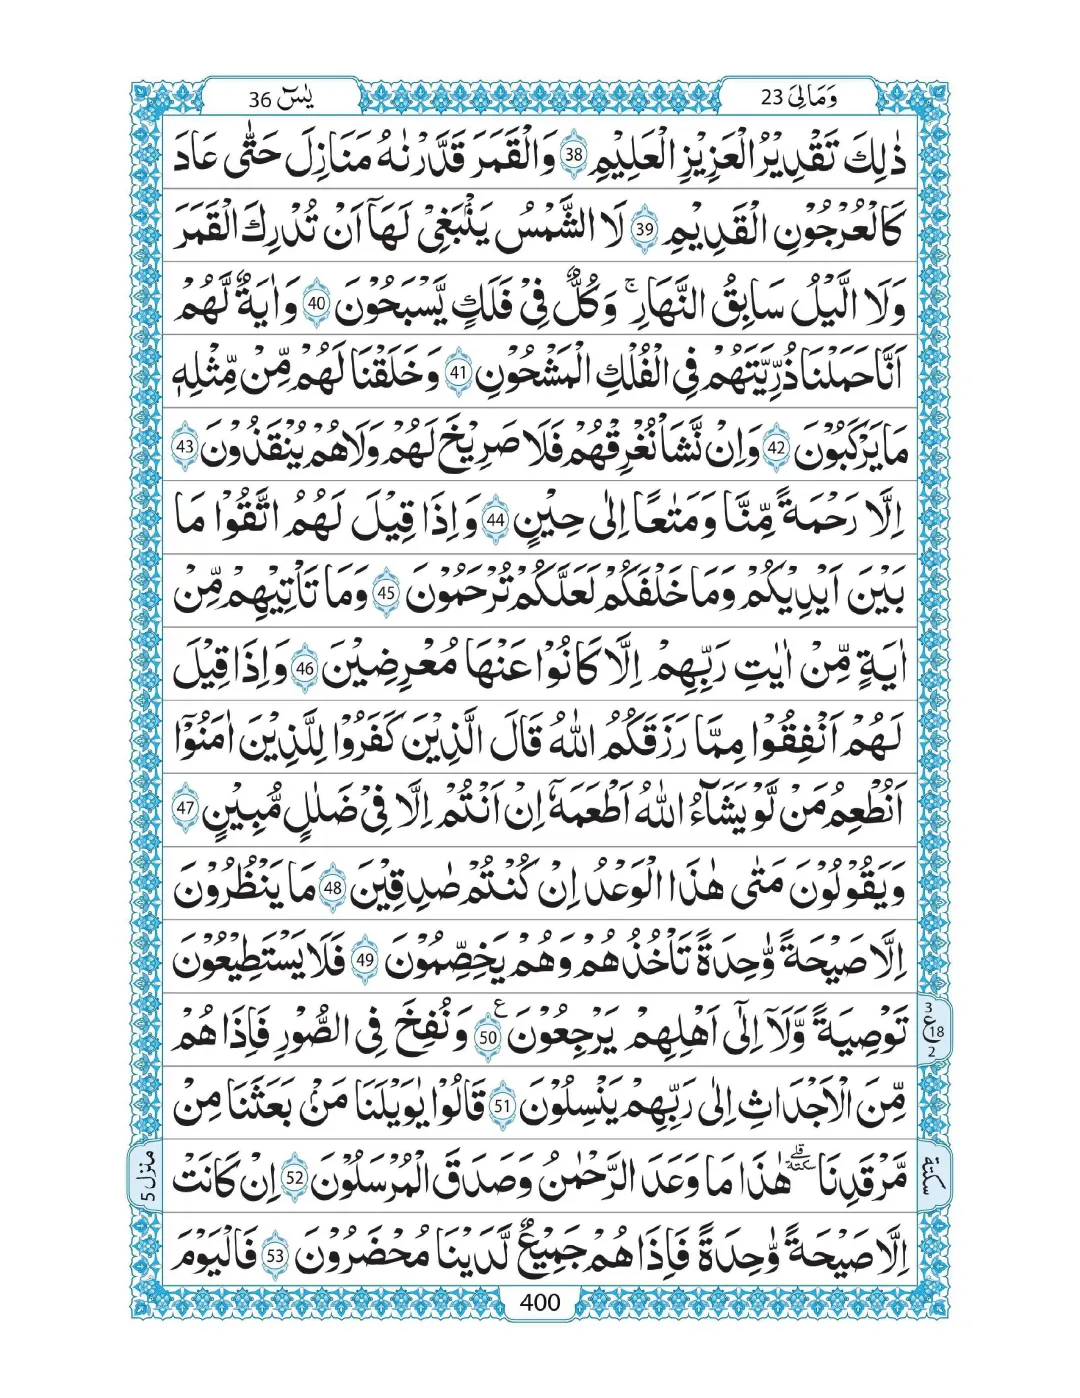 وَمَالِیَ 23
یٰسٓ 36
ذٰلِكَ تَقْدِیْرُ الْعَزِیْزِ الْعَلِیْمِ 38 وَالْقَمَرَ قَدَّرْنٰهُ مَنَازِلَ حَتّٰی عَادَ
كَالْعُرْجُوْنِ الْقَدِیْمِ 39 لَا الشَّمْسُ یَنْۢبَغِیْ لَهَاۤ اَنْ تُدْرِكَ الْقَمَرَ
وَلَا الَّیْلُ سَابِقُ النَّهَارِ ؕ وَكُلٌّ فِیْ فَلَكٍ یَّسْبَحُوْنَ 40 وَاٰیَةٌ لَّهُمْ
اَنَّا حَمَلْنَا ذُرِّیَّتَهُمْ فِی الْفُلْكِ الْمَشْحُوْنِ 41 وَخَلَقْنَا لَهُمْ مِّنْ مِّثْلِهٖ
مَا یَرْكَبُوْنَ 42 وَاِنْ نَّشَاْ نُغْرِقْهُمْ فَلَا صَرِیْخَ لَهُمْ وَلَا هُمْ یُنْقَذُوْنَ 43
اِلَّا رَحْمَةً مِّنَّا وَمَتٰعًا اِلٰی حِیْنٍ 44 وَاِذَا قِیْلَ لَهُمُ اتَّقُوْا مَا
بَیْنَ اَیْدِیْكُمْ وَمَا خَلْفَكُمْ لَعَلَّكُمْ تُرْحَمُوْنَ 45 وَمَا تَاْتِیْهِمْ مِّنْ
اٰیَةٍ مِّنْ اٰیٰتِ رَبِّهِمْ اِلَّا كَانُوْا عَنْهَا مُعْرِضِیْنَ 46 وَاِذَا قِیْلَ
لَهُمْ اَنْفِقُوْا مِمَّا رَزَقَكُمُ اللّٰهُ قَالَ الَّذِیْنَ كَفَرُوْا لِلَّذِیْنَ اٰمَنُوْۤا
اَنُطْعِمُ مَنْ لَّوْ یَشَآءُ اللّٰهُ اَطْعَمَهٗۤ اِنْ اَنْتُمْ اِلَّا فِیْ ضَلٰلٍ مُّبِیْنٍ 47
وَیَقُوْلُوْنَ مَتٰی هٰذَا الْوَعْدُ اِنْ كُنْتُمْ صٰدِقِیْنَ 48 مَا یَنْظُرُوْنَ
اِلَّا صَیْحَةً وَّاحِدَةً تَاْخُذُهُمْ وَهُمْ یَخِصِّمُوْنَ 49 فَلَا یَسْتَطِیْعُوْنَ
تَوْصِیَةً وَّلَاۤ اِلٰۤی اَهْلِهِمْ یَرْجِعُوْنَ ع 50 وَنُفِخَ فِی الصُّوْرِ فَاِذَا هُمْ
3 ع 18 2
مِّنَ الْاَجْدَاثِ اِلٰی رَبِّهِمْ یَنْسِلُوْنَ 51 قَالُوْا یٰوَیْلَنَا مَنْۢ بَعَثَنَا مِنْ
مَّرْقَدِنَا سكتة هٰذَا مَا وَعَدَ الرَّحْمٰنُ وَصَدَقَ الْمُرْسَلُوْنَ 52 اِنْ كَانَتْ
سکتة
منزل 5
اِلَّا صَیْحَةً وَّاحِدَةً فَاِذَا هُمْ جَمِیْعٌ لَّدَیْنَا مُحْضَرُوْنَ 53 فَالْیَوْمَ
400